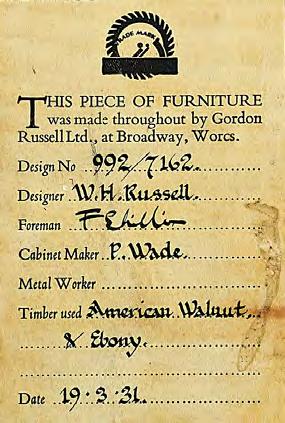 TRADE MARK
THIS PIECE OF FURNITURE
was made throughout by Gordon
Russell Ltd., at Broadway, Worcs.
Design No 992/7162.
Designer W.H. Russell.
Foreman
Cabinet Maker P. Wade.
Metal Worker
Timber used American Walnut
& Ebony.
Date 19·3·31.